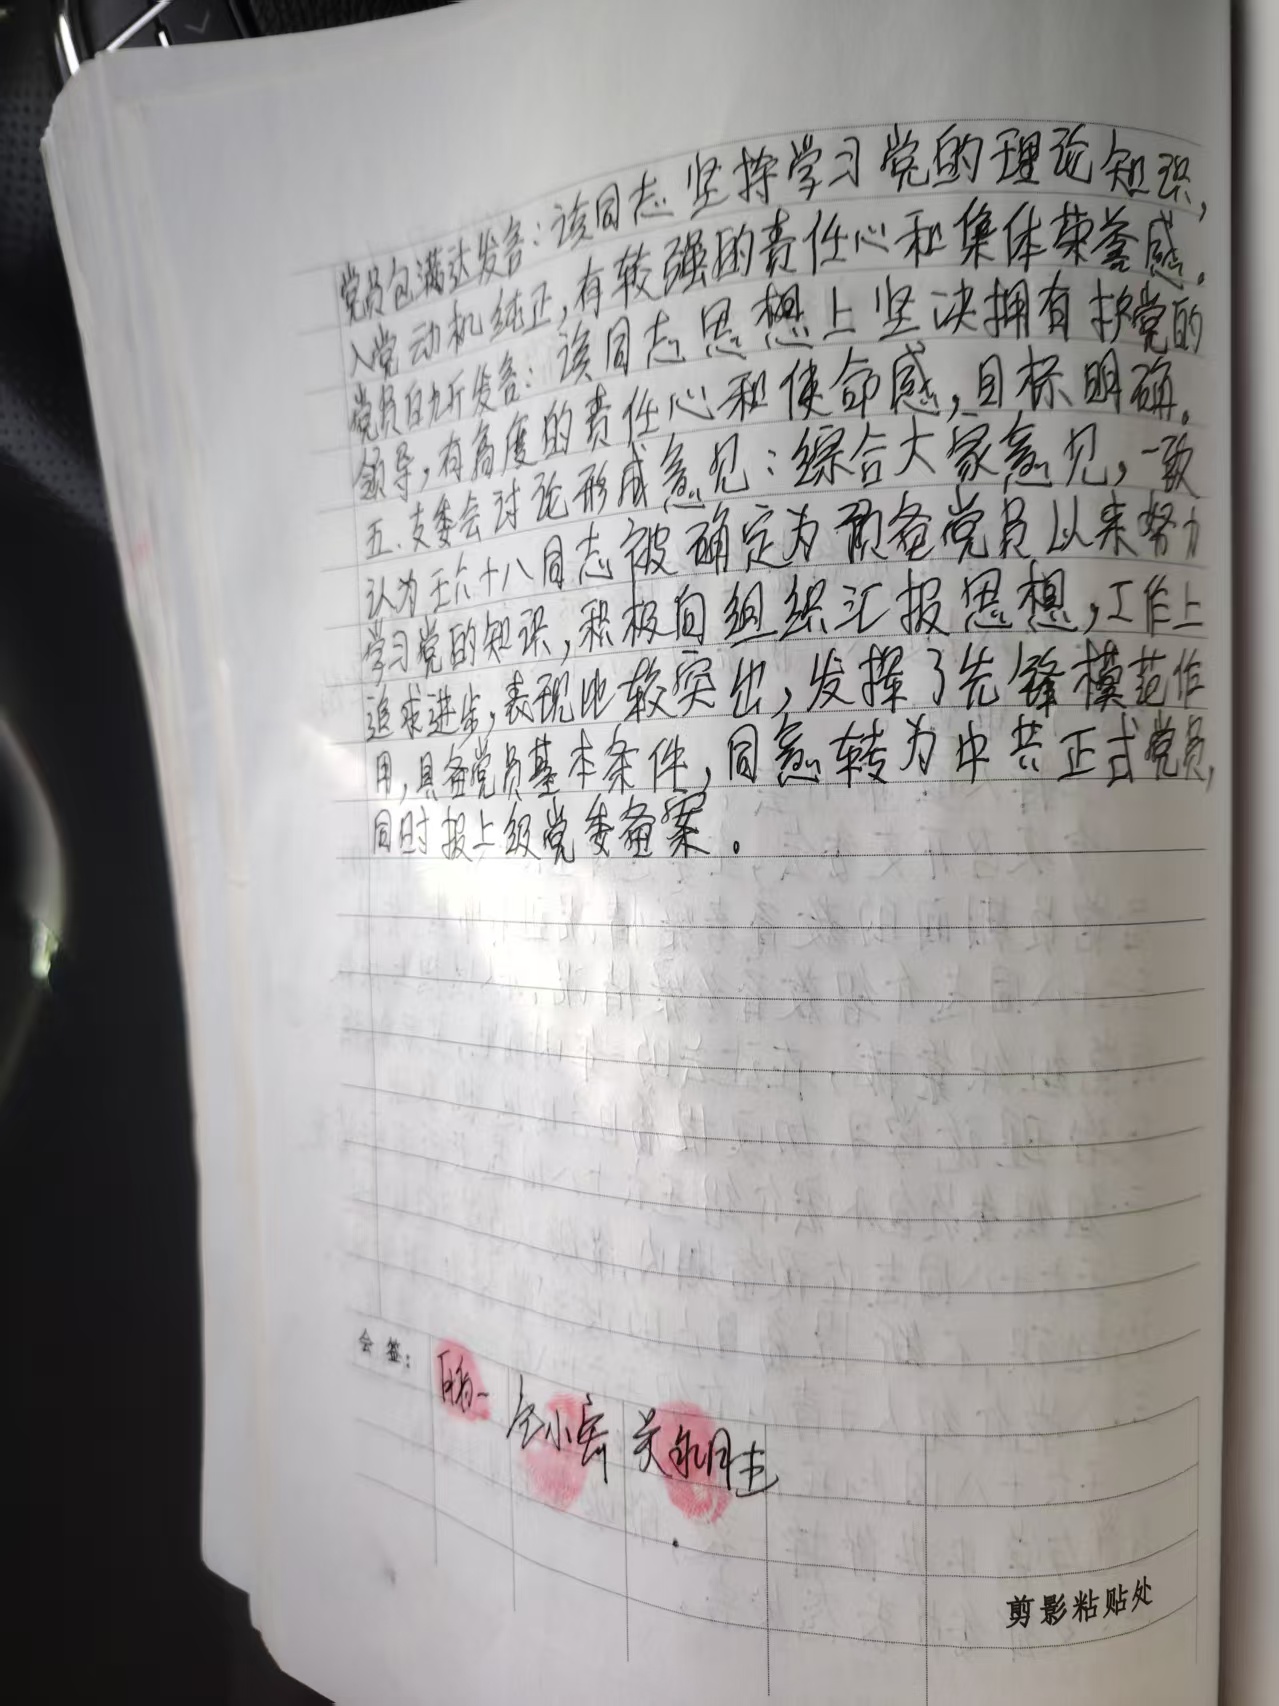 党员包满达发言：该同志坚持学习党的理论知识，
入党动机纯正，有较强的责任心和集体荣誉感。
党员白九斤发言：该同志思想上坚决拥有护党的
领导，有高度的责任心和使命感，目标明确。
五、支委会讨论形成意见：综合大家意见，一致
认为王六十八同志被确定为预备党员以来努力
学习党的知识，积极向组织汇报思想，工作上
追求进步，表现比较突出，发挥了先锋模范作
用，具备党员基本条件，同意转为中共正式党员，
同时报上级党委备案。
会签：
剪影粘贴处